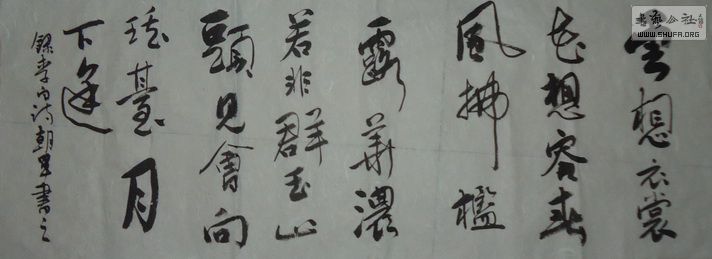 雲想衣裳
花想容春
風拂檻
露華濃
若非群玉山
頭見會向
瑶臺月
下逢
錄李白詩朝書之
書藝公社
WWW.SHUFA.ORG